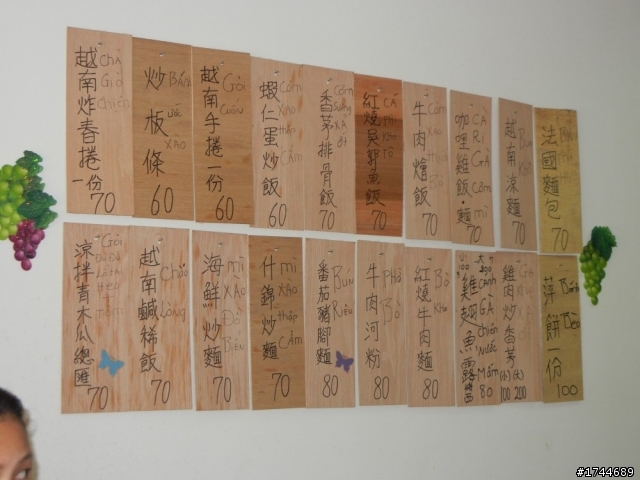 越南炸春捲一份
Chả Giò Chiên
70
炒板條
Bánh ướt xào
60
越南手捲一份
Gỏi Cuốn
60
蝦仁蛋炒飯
Cơm xào thập Cẩm
60
香茅排骨飯
Cơm Sường xả ớt
70
紅燒吳郭魚飯
CÁ phi kho tộ
70
牛肉燴飯
Cơm xào Bò
70
咖哩雞飯.麵
CÀ RI GÀ Cơm mì
70
越南涼麵
Bún
70
法國麵包
Bánh mì
70
涼拌青木瓜總匯
Gỏi
70
越南鹹稀飯
Cháo Lòng
70
海鮮炒麵
mì xào Đồ Biển
70
什錦炒麵
mì xào thập Cẩm
70
番茄豬腳麵
Bún Riêu
80
牛肉河粉
Phở Bò
80
紅燒牛肉麵
Bò Kho
80
雞翅魚露醬
GÀ chiên Nước Mắm
80
雞肉炒香茅
(小)(大)
100 200
萍餅一份
Bánh Bèo
100
#1744689